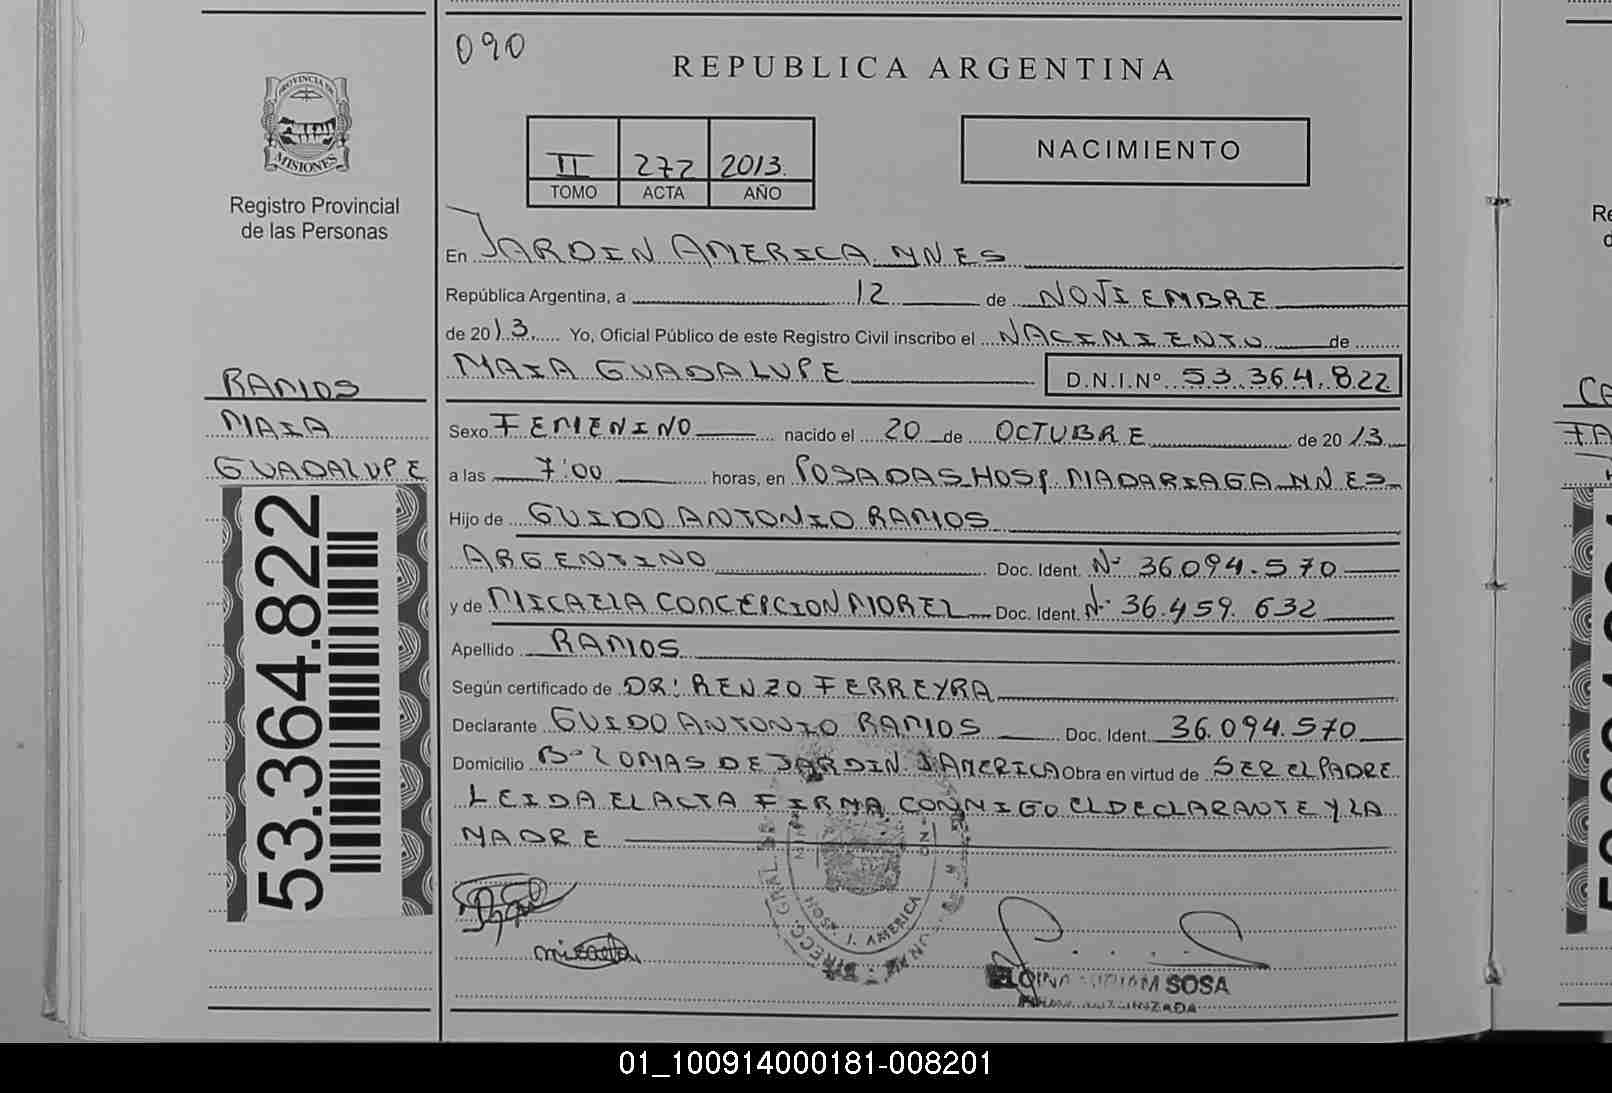 090
REPUBLICA ARGENTINA
PROVINCIA DE
MISIONES
Registro Provincial
de las Personas
II 272 2013.
TOMO ACTA AÑO
NACIMIENTO
En JARDIN AMERICA MNES
República Argentina, a 12 de NOVIEMBRE
de 2013 Yo, Oficial Público de este Registro Civil inscribo el NACIMIENTO de
MAIA GUADALUPE D.N.I.Nº 53.364.822
RAMOS
MAIA
GUADALUPE
53.364.822
Sexo FEMENINO nacido el 20 de OCTUBRE de 2013
a las 7:00 horas, en POSADAS HOSP MADARIAGA MNES
Hijo de GUIDO ANTONIO RAMOS
ARGENTINO Doc. Ident. Nº 36.094.570
y de MICAELA CONCEPCION MOREL Doc. Ident. Nº 36.459.632
Apellido RAMOS
Según certificado de DR: RENZO FERREYRA
Declarante GUIDO ANTONIO RAMOS Doc. Ident. 36.094.570
Domicilio Bº LOMAS DE JARDIN J AMERICA Obra en virtud de SER EL PADRE
LEIDA EL ACTA FIRMA CONMIGO EL DECLARANTE Y LA
MADRE
micaela
J. AMERICA
SOSA
01_100914000181-008201